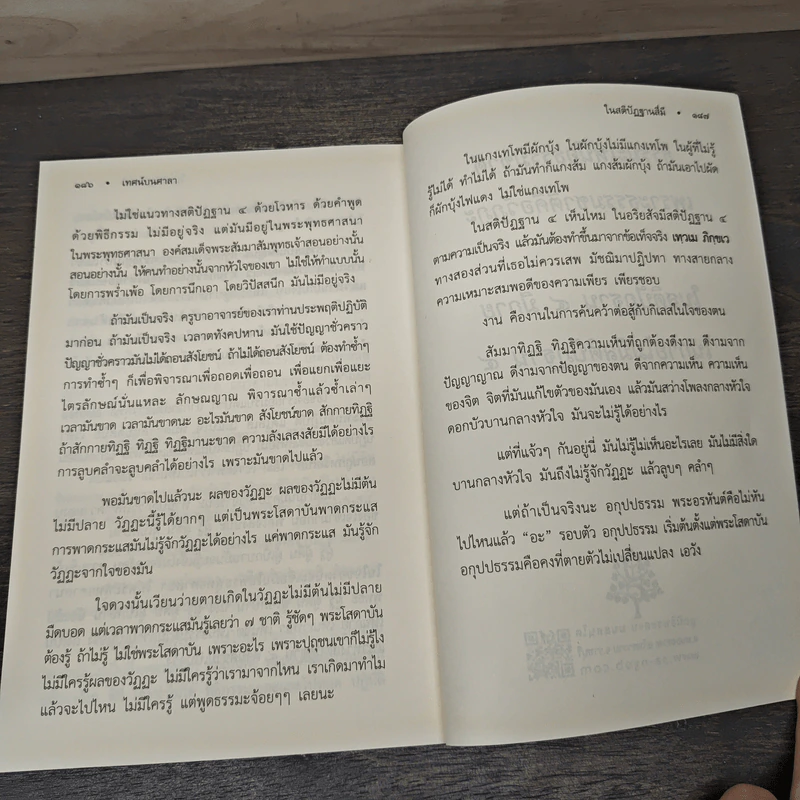 ๑๘๖ • เทศน์บนศาลา
ไม่ใช่แนวทางสติปัฏฐาน ๔ ด้วยโวหาร ด้วยคำพูด
ด้วยพิธีกรรม ไม่มีอยู่จริง แต่มันมีอยู่ในพระพุทธศาสนา
ในพระพุทธศาสนา องค์สมเด็จพระสัมมาสัมพุทธเจ้าสอนอย่างนั้น
สอนอย่างนั้น ให้คนทำอย่างนั้นจากหัวใจของเขา ไม่ใช่ให้ทำแบบนั้น
โดยการพร่ำเพ้อ โดยการนึกเอา โดยวิปัสสนึก มันไม่มีอยู่จริง
ถ้ามันเป็นจริง ครูบาอาจารย์ของเราท่านประพฤติปฏิบัติ
มาก่อน ถ้ามันเป็นจริง เวลาตทังคปหาน มันใช้ปัญญาชั่วคราว
ปัญญาชั่วคราวมันไม่ได้ถอนสังโยชน์ ถ้าไม่ได้ถอนสังโยชน์ ต้องทำซ้ำๆ
การทำซ้ำๆ ก็เพื่อพิจารณาเพื่อถอดเพื่อถอน เพื่อแยกเพื่อแยะ
ไตรลักษณ์นั่นแหละ ลักษณญาณ พิจารณาซ้ำแล้วซ้ำเล่าๆ
เวลามันขาด เวลามันขาดนะ อะไรมันขาด สังโยชน์ขาด สักกายทิฏฐิ
ถ้าสักกายทิฏฐิ ทิฏฐิ ทิฏฐิมานะขาด ความลังเลสงสัยมีได้อย่างไร
การลูบคลำจะลูบคลำได้อย่างไร เพราะมันขาดไปแล้ว
พอมันขาดไปแล้วนะ ผลของวัฏฏะ ผลของวัฏฏะไม่มีต้น
ไม่มีปลาย วัฏฏะนี้รู้ได้ยากๆ แต่เป็นพระโสดาบันพาดกระแส
การพาดกระแสมันไม่รู้จักวัฏฏะได้อย่างไร แค่พาดกระแส มันรู้จัก
วัฏฏะจากใจของมัน
ใจดวงนั้นเวียนว่ายตายเกิดในวัฏฏะไม่มีต้นไม่มีปลาย
มืดบอด แต่เวลาพาดกระแสมันรู้เลยว่า ๗ ชาติ รู้ชัดๆ พระโสดาบัน
ต้องรู้ ถ้าไม่รู้ ไม่ใช่พระโสดาบัน เพราะอะไร เพราะปุถุชนเขาก็ไม่รู้ไง
ไม่มีใครรู้ผลของวัฏฏะ ไม่มีใครรู้ว่าเรามาจากไหน เราเกิดมาทำไม
แล้วจะไปไหน ไม่มีใครรู้ แต่พูดธรรมะจ้อยๆๆ เลยนะ
ในสติปัฏฐานสี่มี • ๑๘๗
ในแกงเทโพมีผักบุ้ง ในผักบุ้งไม่มีแกงเทโพ ในผู้ที่ไม่รู้
รู้ไม่ได้ ทำไม่ได้ ถ้ามันทำก็แกงส้ม แกงส้มผักบุ้ง ถ้ามันเอาไปผัด
ก็ผักบุ้งไฟแดง ไม่ใช่แกงเทโพ
ในสติปัฏฐาน ๔ เห็นไหม ในอริยสัจมีสติปัฏฐาน ๔
ตามความเป็นจริง แล้วมันต้องทำขึ้นมาจากข้อเท็จจริง เทฺวเม ภิกฺขเว
ทางสองส่วนที่เธอไม่ควรเสพ มัชฌิมาปฏิปทา ทางสายกลาง
ความเหมาะสมพอดีของความเพียร เพียรชอบ
งาน คืองานในการค้นคว้าต่อสู้กับกิเลสในใจของตน
สัมมาทิฏฐิ ทิฏฐิความเห็นที่ถูกต้องดีงาม ดีงามจาก
ปัญญาญาณ ดีงามจากปัญญาของตน ดีจากความเห็น ความเห็น
ของจิต จิตที่มันแก้ไขตัวของมันเอง แล้วมันสว่างโพลงกลางหัวใจ
ดอกบัวบานกลางหัวใจ มันจะไม่รู้ได้อย่างไร
แต่ที่แจ้วๆ กันอยู่นี่ มันไม่รู้ไม่เห็นอะไรเลย มันไม่มีสิ่งใด
บานกลางหัวใจ มันถึงไม่รู้จักวัฏฏะ แล้วลูบๆ คลำๆ
แต่ถ้าเป็นจริงนะ อกุปปธรรม พระอรหันต์คือไม่หัน
ไปไหนแล้ว “อะ” รอบตัว อกุปปธรรม เริ่มต้นตั้งแต่พระโสดาบัน
อกุปปธรรมคือคงที่ตายตัวไม่เปลี่ยนแปลง เอวัง